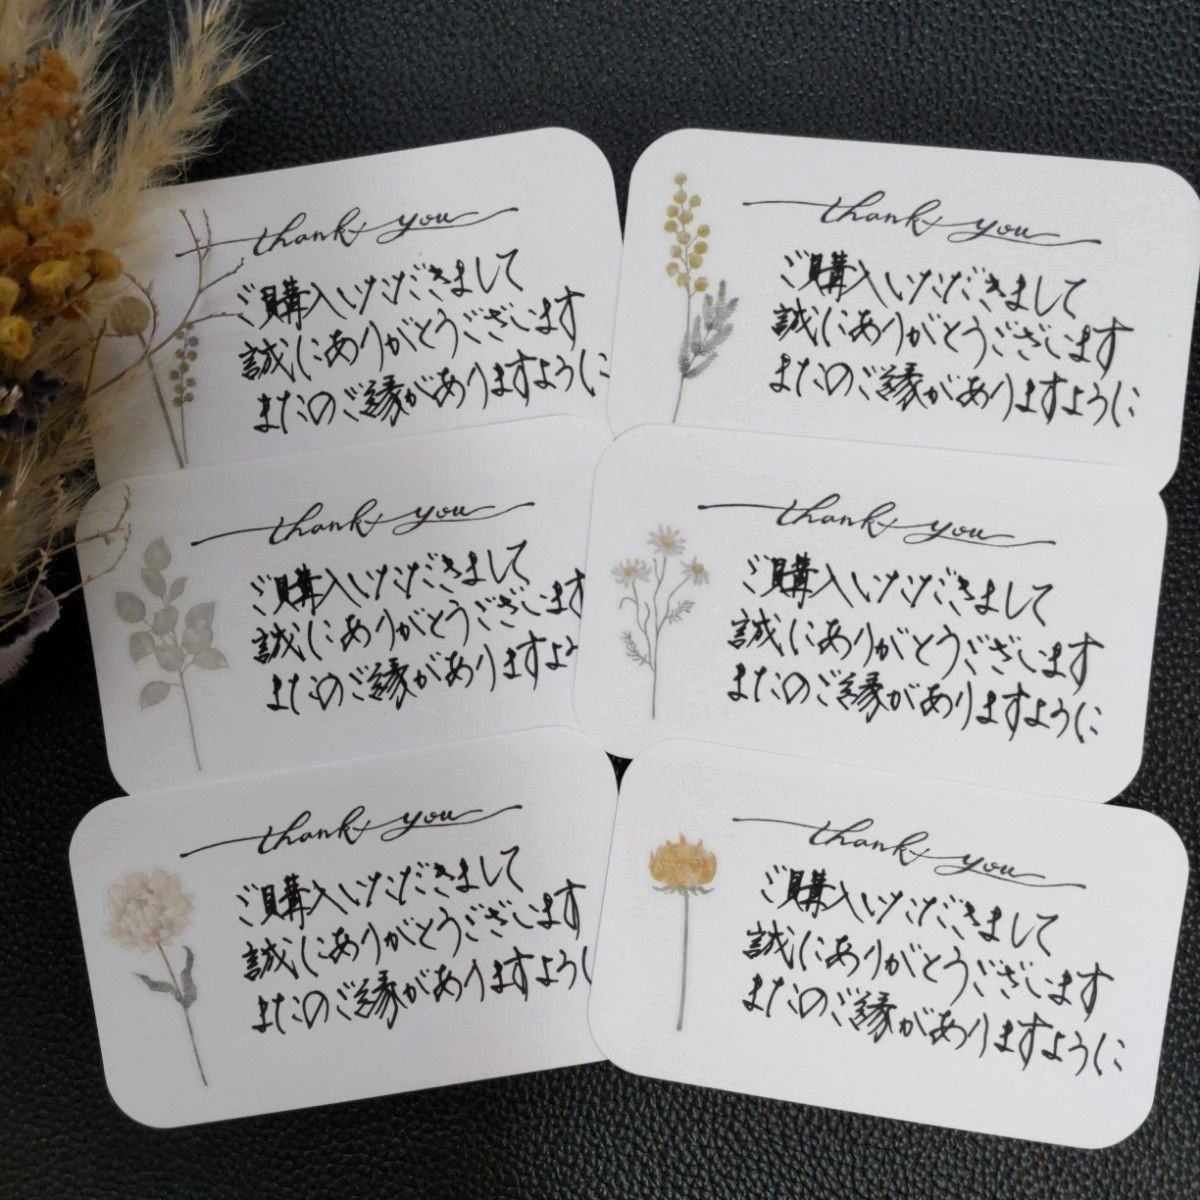 thank you
ご購入いただきまして
誠にありがとうございます
またのご縁がありますように
thank you
ご購入いただきまして
誠にありがとうございます
またのご縁がありますように
thank you
ご購入いただきまして
誠にありがとうございます
またのご縁がありますよ
thank you
ご購入いただきまして
誠にありがとうございます
またのご縁がありますように
thank you
ご購入いただきまして
誠にありがとうございます
またのご縁がありますよう
thank you
ご購入いただきまして
誠にありがとうございます
またのご縁がありますように